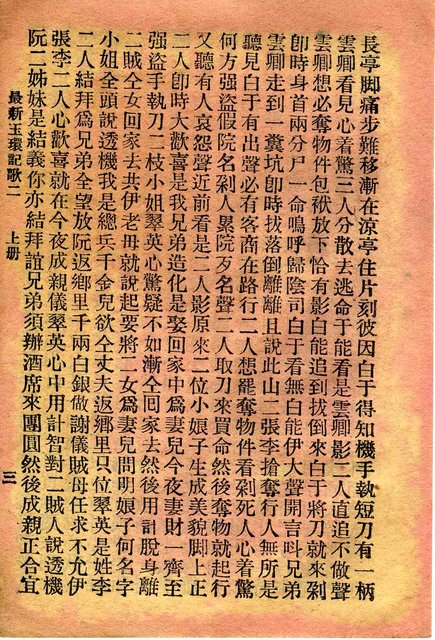 長亭脚痛步難移漸在涼亭住片刻彼因白于得知機手執短刀有一柄
雲卿看見心着驚三人分散去逃命于能看是雲卿影二人直追不做聲
雲卿想必奪物件包袱放下恰有影白能追到拔倒來白于將刀就來剁
卽時身首兩分尸一命鳴呼歸陰司白于看無白能伊大聲開言呌兄弟
雲卿走到一糞坑卽時拔落倒離離且說此山二張李搶奪行人無所是
聽見白于有出聲必有客商在路行二人想擺奪物件看剁死人心着驚
何方强盜假院名剁人累院歹名聲二人取刀來買命然後奪物就起行
又聽有人哀怨聲近前看是二人影原來二位小娘子生成美貌脚上正
二人卽時大歡喜是我兄弟造化是娶回家中爲妻兒今夜妻財一齊至
强盜手執刀二枝小姐翠英心驚疑不如漸仝囘家去然後用計脫身離
二賊仝女回家去共伊老母就說起要將二女爲妻兒問明娘子何名字
小姐全頭說透機我是總兵千金兒欲仝丈夫返鄉里只位翠英是姓李
二人結拜爲兄弟全望放阮返鄉里千兩白銀做謝儀賊母任求不允伊
張李二人心歡喜就在今夜成親儀翠英心中用計智對二賊人說透機
阮二姊妹是結義你亦結拜誼兄弟須辦酒席來團圓然後成親正合宜
最新玉環記歌二　上册　三